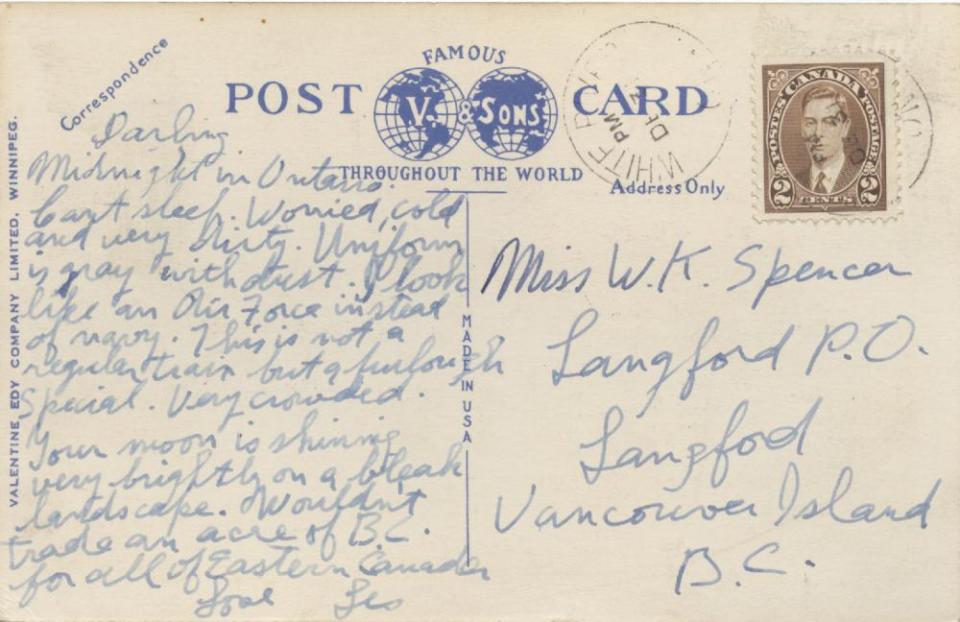 Correspondence
FAMOUS
POST CARD
V. & SONS
THROUGHOUT THE WORLD
Address Only
WHITE RIVER
PM
DE
ONT
POSTES CANADA POSTAGE
2 CENTS 2
VALENTINE EDY COMPANY LIMITED, WINNIPEG.
MADE IN USA
Darling
Midnight in Ontario.
Can't sleep. Worried, cold
and very dirty. Uniform
is gray with dust. I look
like an Air Force instead
of navy. This is not a
regular train but a furlough
Special. Very crowded.
Your moon is shining
very brightly on a bleak
landscape. Wouldn't
trade an acre of B.C.
for all of Eastern Canada
Love Les
Miss W.K. Spencer
Langford P.O.
Langford
Vancouver Island
B.C.